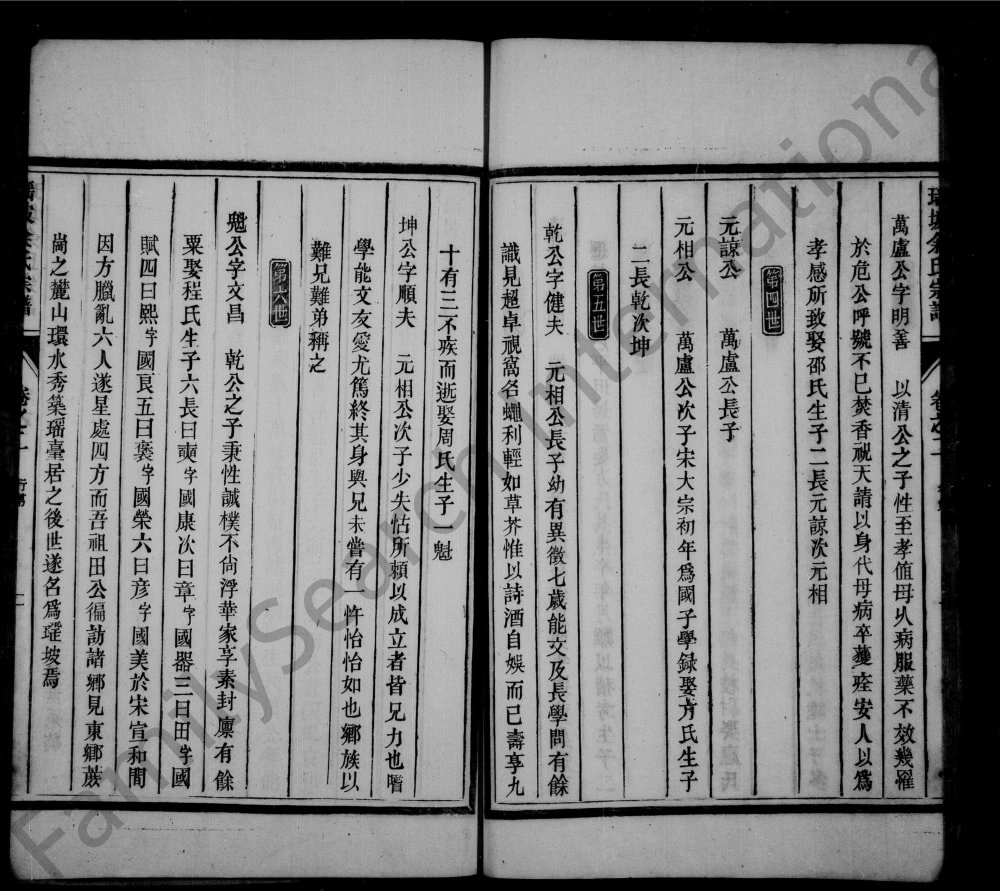 萬盧公字明善 以清公之子性至孝值母㕥病服藥不效幾罹
於危公呼號不已焚香祝天請以身代母病卒獲痊安人以爲
孝感所致娶邵氏生子二長元諒次元相
第四世
元諒公 萬盧公長子
元相公 萬盧公次子宋大宗初年爲國子學録娶方氏生子
二長乾次坤
第五世
乾公字健夫 元相公長子幼有異徵七歲能文及長學問有餘
識見超卓視窩名蠅利輕如草芥惟以詩酒自娛而已壽享九
十有三不疾而逝娶周氏生子一魁
坤公字順夫 元相公次子少失怙所賴以成立者皆兄力也嗜
學能文友愛尤篤終其身與兄未嘗有一忤怡怡如也鄉族以
難兄難弟稱之
第六世
魁公字文昌 乾公之子秉性誠樸不尙浮華家享素封廩有餘
粟娶程氏生子六長曰奭字國康次曰章字國器三曰田字國
賦四曰熙字國良五曰褒字國榮六曰彦字國美於宋宣和間
因方臘亂六人遂星處四方而吾祖田公徧訪諸鄉見東鄉蔟
崗之麓山環水秀築瑶臺居之後世遂名爲瓘坡焉
FamilySearch International